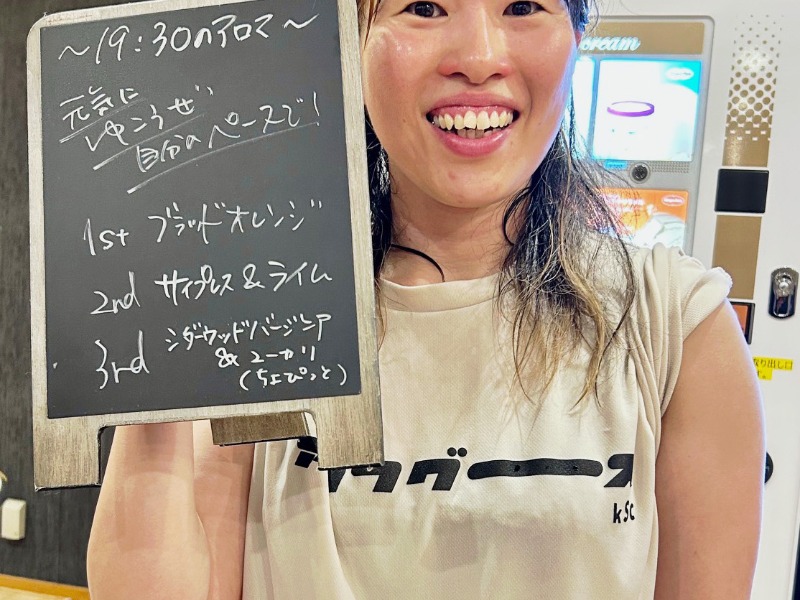 ～19:30のアロマ～
元気に
ゆこうぜ、
自分のペースで!
1st ブラッドオレンジ
2nd サイプレス&ライム
3rd シダーウッドバージニア
&ユーカリ
(ちょぴっと)
cream
タグ
kSc
取り出し口
です。